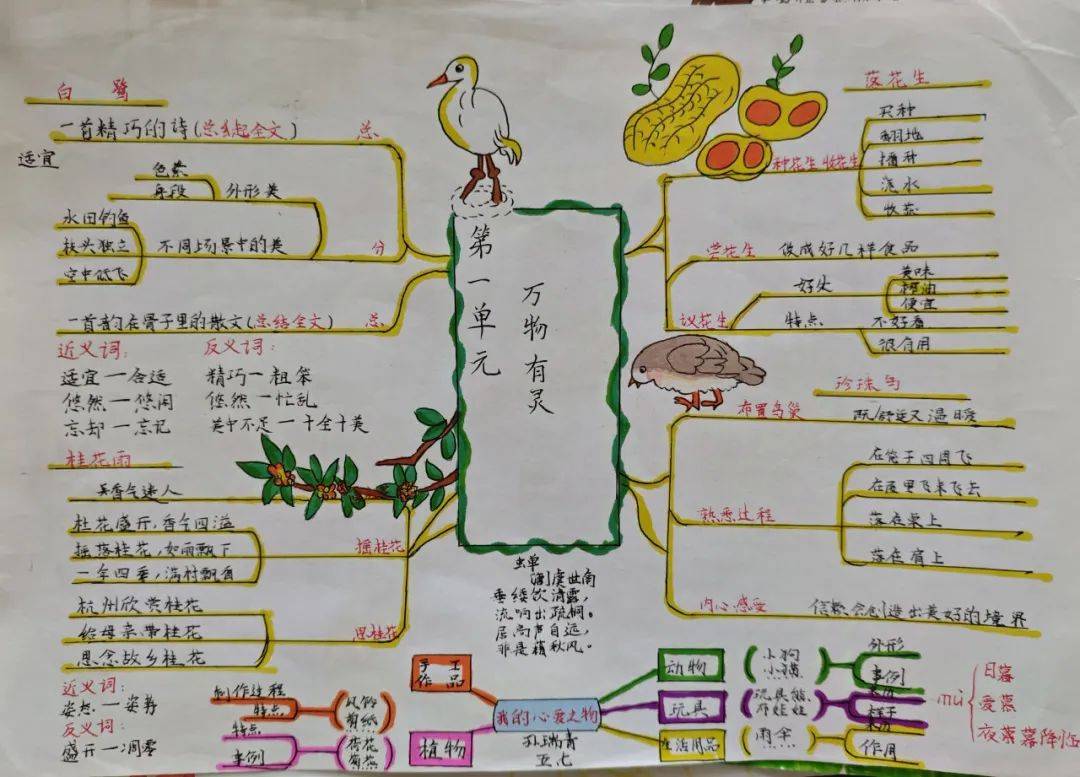 白鹭
一首精巧的诗(总结起全文) 总
适宜
色素
身段
外形美
水田钓鱼
枝头独立
空中低飞
不同场景中的美
分
一首韵在骨子里的散文(总结全文) 总
近义词: 反义词:
适宜一合适 精巧一粗笨
悠然一悠闲 悠然一忙乱
忘却一忘记 美中不足一十全十美
桂花雨
香气迷人
桂花盛开,香气四溢
摇落桂花,如雨飘下
一年四季,满村飘香
摇桂花
杭州欣赏桂花
给母亲带桂花
思念故乡桂花
思桂花
近义词:
姿态一姿势
反义词:
盛开一凋零
第一单元
万物有灵
落花生
买种
翻地
播种
浇水
收获
种花生 收花生
尝花生 做成好几样食品
议花生
好处
美味
榨油
便宜
特点
不好看
很有用
珍珠鸟
布置鸟巢 既舒适又温暖
熟悉过程
在笼子四周飞
在屋里飞来飞去
落在桌上
落在肩上
内心感受 信赖会创造出美好的境界
蝉
虞世南
垂緌饮清露,
流响出疏桐。
居高声自远,
非是藉秋风。
我的心爱之物
手工作品
制作过程
特点
风铃
剪纸
植物
特点
事例
荷花
菊花
动物
小狗
小猫
外形
事例
玩具
玩具熊
布娃娃
样子
生活用品
雨伞
作用
mù
日暮
爱慕
夜幕降临